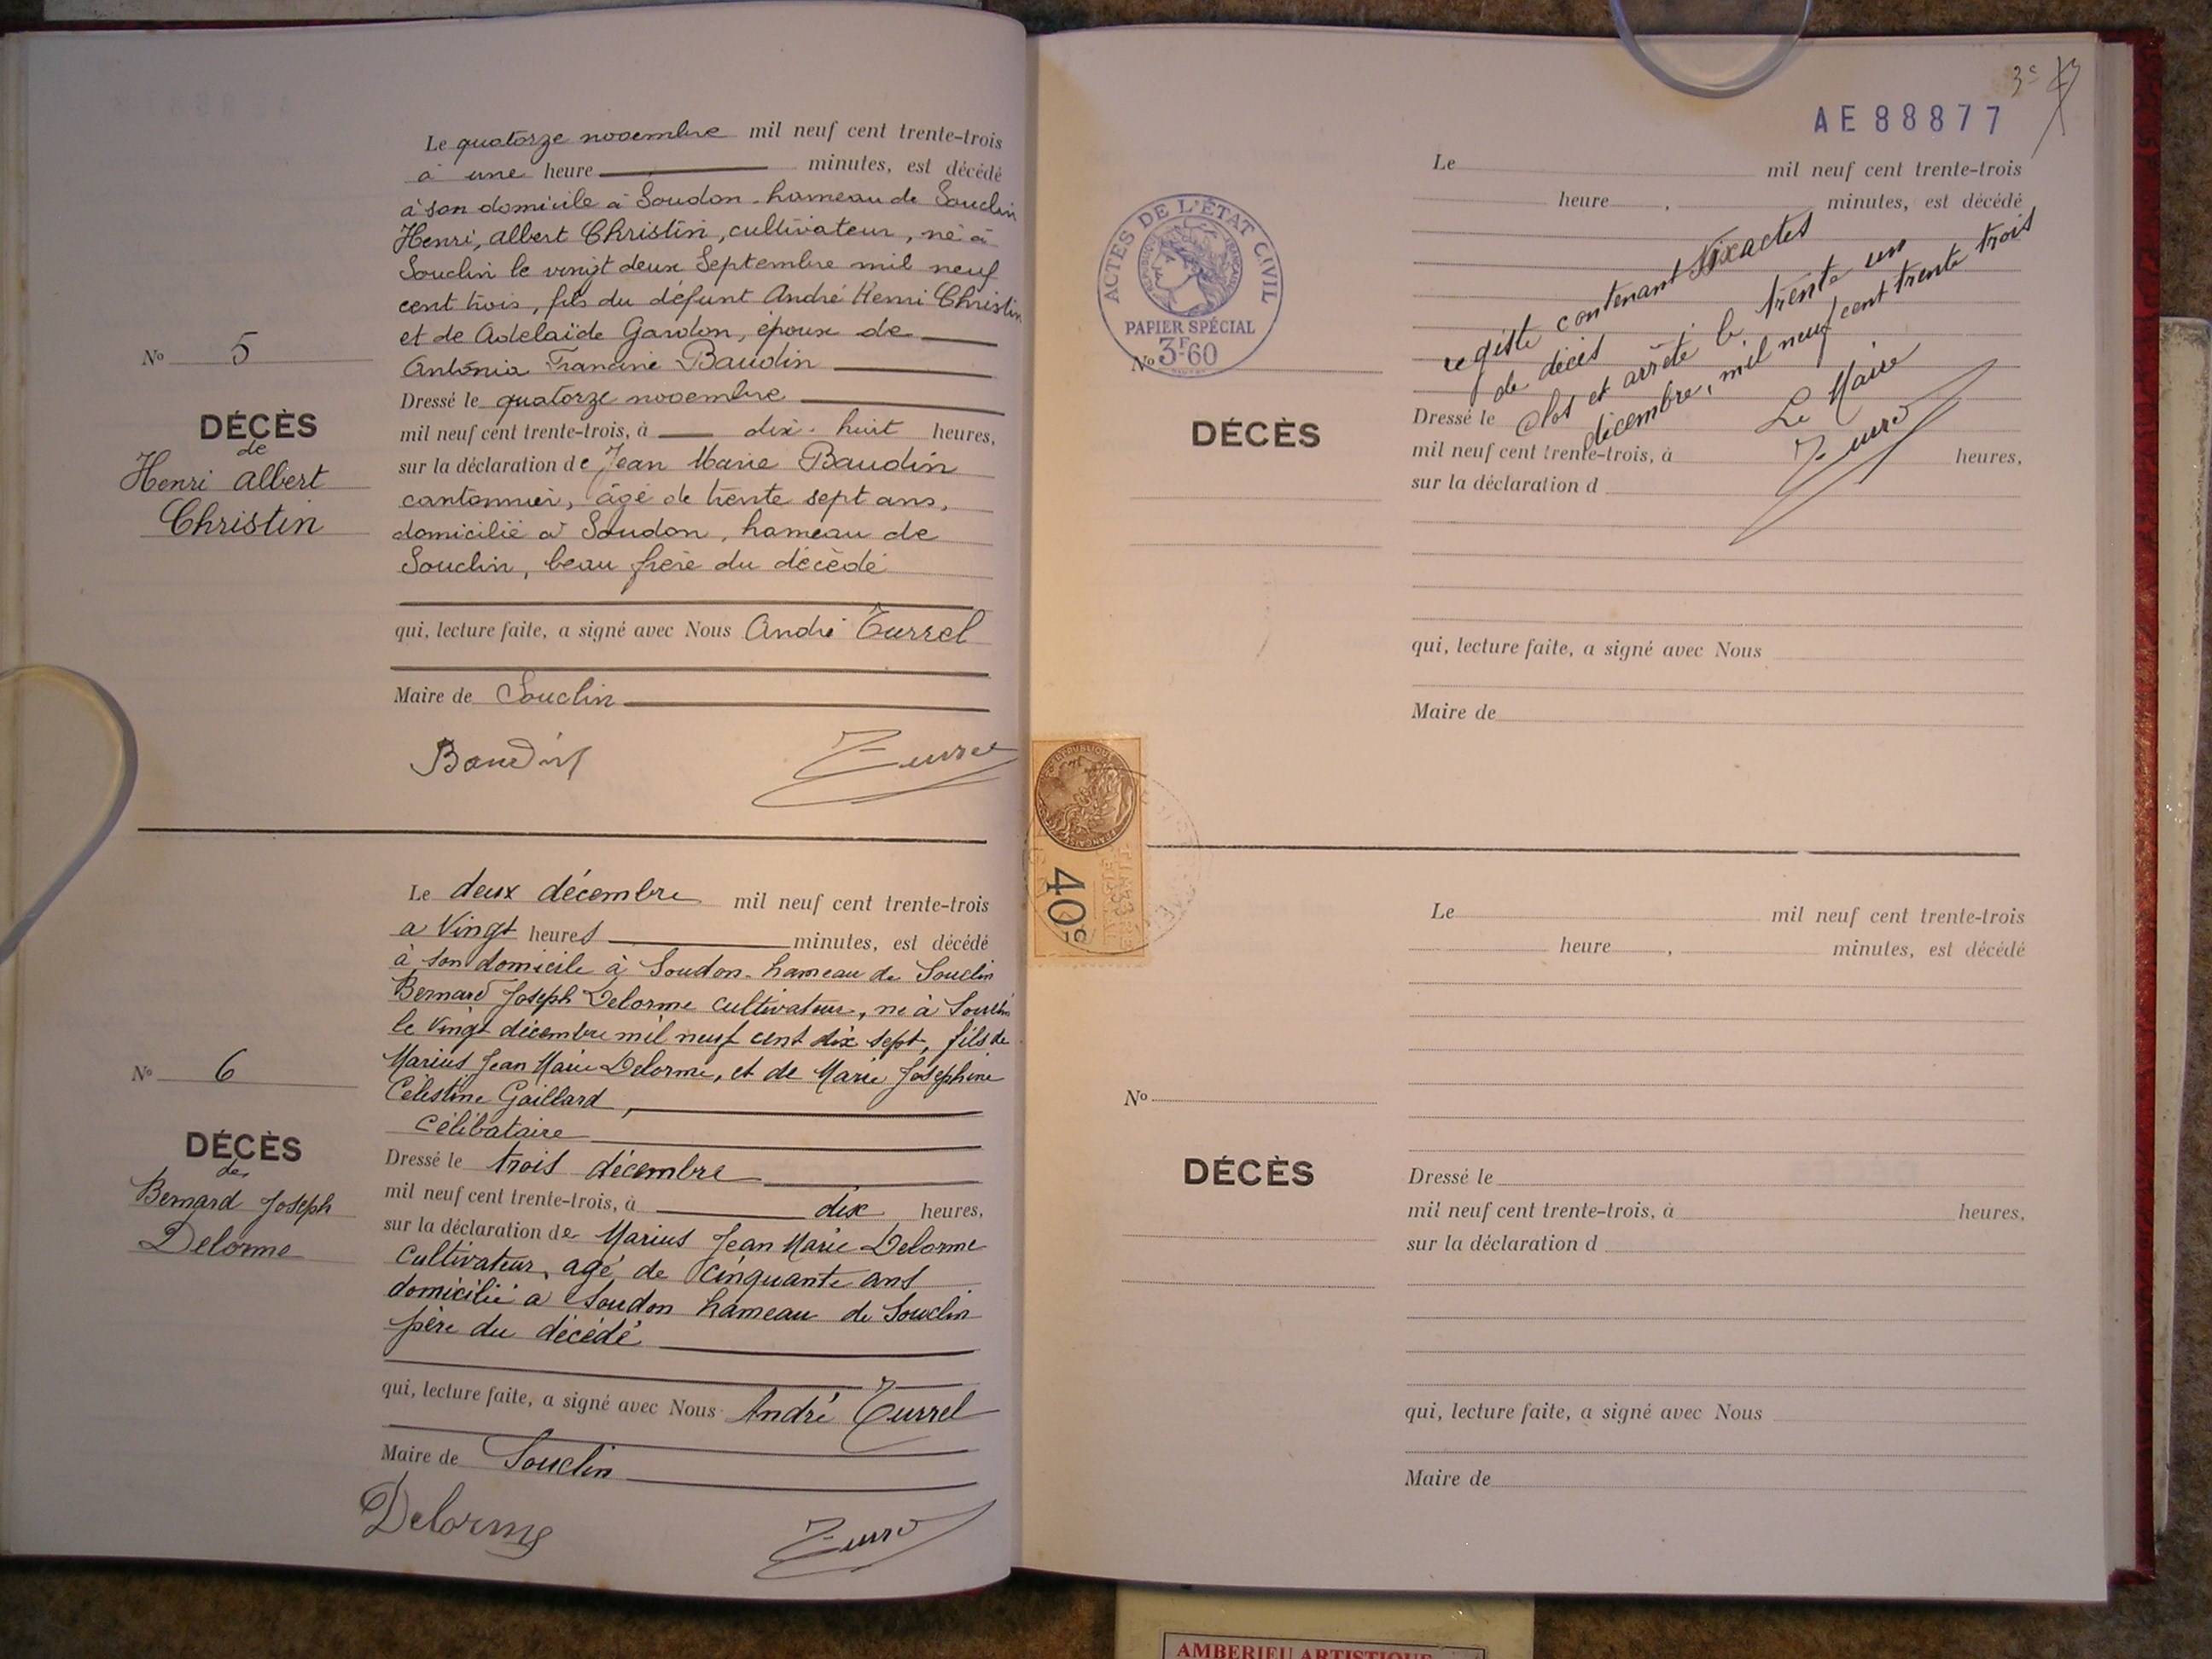 Le quatorze novembre mil neuf cent trente-trois
à une heure minutes, est décédé
à son domicile à Soudon - hameau de Souclin
Henri, Albert Christin, cultivateur, né à
Souclin le vingt deux Septembre mil neuf
cent trois, fils du défunt André Henri Christin
et de Adelaïde Gardon, époux de
Antonia Francine Baudin
Dressé le quatorze novembre
mil neuf cent trente-trois, à dix-huit heures,
sur la déclaration de Jean Marie Baudin
cantonnier, âgé de trente sept ans,
domicilié à Soudon, hameau de
Souclin, beau frère du décédé
qui, lecture faite, a signé avec Nous André Turrel
Maire de Souclin
Baudin Turrel
No 5
DÉCÈS
de
Henri Albert
Christin
Le deux décembre mil neuf cent trente-trois
a Vingt heures minutes, est décédé
à son domicile à Soudon - hameau de Souclin
Bernard Joseph Delorme cultivateur, né à Souclin
le Vingt décembre mil neuf cent dix sept, fils de
Marius Jean Marie Delorme, et de Marie Joséphine
Célestine Gaillard,
célibataire
Dressé le trois décembre
mil neuf cent trente-trois, à dix heures,
sur la déclaration de Marius Jean Marie Delorme
cultivateur, agé de cinquante ans
domicilié a Soudon hameau de Souclin
père du décédé
qui, lecture faite, a signé avec Nous André Turrel
Maire de Souclin
Delorme Turrel
No 6
DÉCÈS
de
Bernard Joseph
Delorme
3e
AE88877
Le mil neuf cent trente-trois
heure , minutes, est décédé
ACTES DE L'ÉTAT CIVIL
RÉPUBLIQUE FRANÇAISE
PAPIER SPÉCIAL
3F60
No
DÉCÈS
registre contenant Six actes
de décès
Clos et arrêté le trente un
décembre, mil neuf cent trente trois
Le Maire
Turrel
Dressé le
mil neuf cent trente-trois, à heures,
sur la déclaration d
qui, lecture faite, a signé avec Nous
Maire de
40c
Le mil neuf cent trente-trois
heure , minutes, est décédé
No
DÉCÈS
Dressé le
mil neuf cent trente-trois, à heures,
sur la déclaration d
qui, lecture faite, a signé avec Nous
Maire de
AMBERIEU ARTISTIQUE